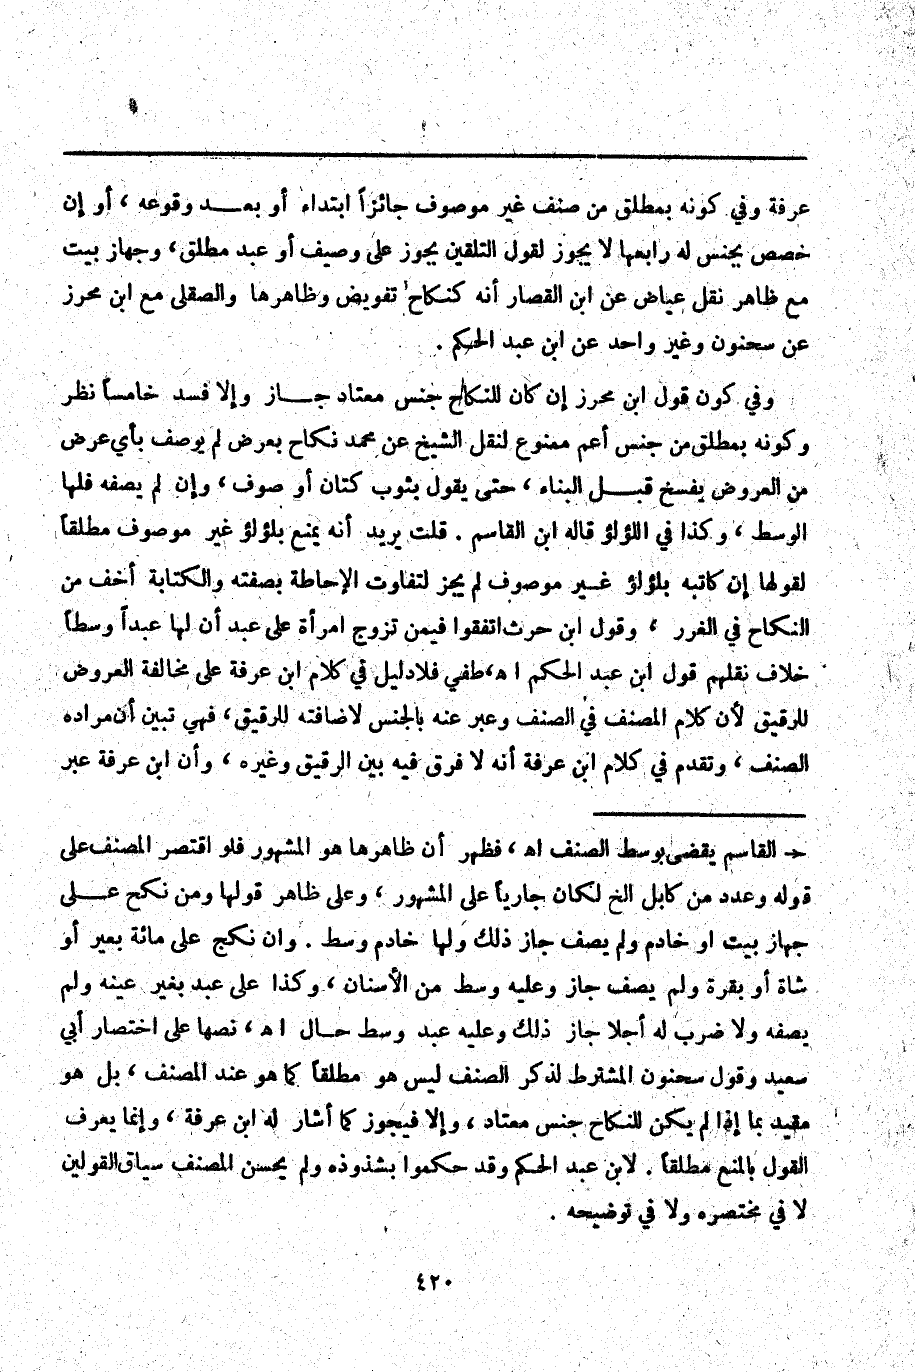 عرفة وفي كونه بمطلق من صنف غير موصوف جائزاً ابتداء أو بعـــد وقوعه ، أو إن
خصص بجنس له رابعها لا يجوز لقول التلقين يجوز على وصيف أو عبد مطلق، وجهاز بيت
مع ظاهر نقل عياض عن ابن القصار أنه كنكاح تفويض وظاهرها والصقلى مع ابن محرز
عن سحنون وغير واحد عن ابن عبد الحكم .
وفي كون قول ابن محرز إن كان للنكاح جنس معتاد جـــاز وإلا فسد خامساً نظر
وكونه بمطلق من جنس أعم ممنوع لنقل الشيخ عن محمد نكاح بعرض لم يوصف بأي عرض
من العروض يفسخ قبـــل البناء ، حتى يقول بثوب كتان أو صوف ، وإن لم يصفه فلها
الوسط ، وكذا في اللؤلؤ قاله ابن القاسم . قلت يريد أنه يمنع بلؤلؤ غير موصوف مطلقاً
لقولها إن كاتبه بلؤلؤ غــير موصوف لم يجز لتفاوت الإحاطة بصفته والكتابة أخف من
النكاح في الغرر ، وقول ابن حرث اتفقوا فيمن تزوج امرأة على عبد أن لها عبداً وسطاً
خلاف نقلهم قول ابن عبد الحكم ا ه، طفي فلا دليل في كلام ابن عرفة على مخالفة العروض
للرقيق لأن كلام المصنف في الصنف وعبر عنه بالجنس لاضافته للرقيق، فهي تبين أن مراده
الصنف ، وتقدم في كلام ابن عرفة أنه لا فرق فيه بين الرقيق وغيره ، وأن ابن عرفة عبر
→ القاسم يقضى بوسط الصنف اه ، فظهر أن ظاهرها هو المشهور فلو اقتصر المصنف على
قوله وعدد من كابل الخ لكان جارياً على المشهور ، وعلى ظاهر قولها ومن نكح عـــلى
جهاز بيت او خادم ولم يصف جاز ذلك ولها خادم وسط . وان نكح على مائة بعير أو
شاة أو بقرة ولم يصف جاز وعليه وسط من الأسنان ، وكذا على عبد بغير عينه ولم
يصفه ولا ضرب له أجلا جاز ذلك وعليه عبد وسط حــال ا ه ، نصها على اختصار أبي
سعيد وقول سحنون المشترط لذكر الصنف ليس هو مطلقاً كما هو عند المصنف ، بل هو
مقيد بما إذا لم يكن للنكاح جنس معتاد ، وإلا فيجوز كما أشار له ابن عرفة ، وإنما يعرف
القول بالمنع مطلقاً . لابن عبد الحكم وقد حكموا بشذوذه ولم يحسن المصنف سياق القولين
لا في مختصره ولا في توضيحه .
٤٢٠